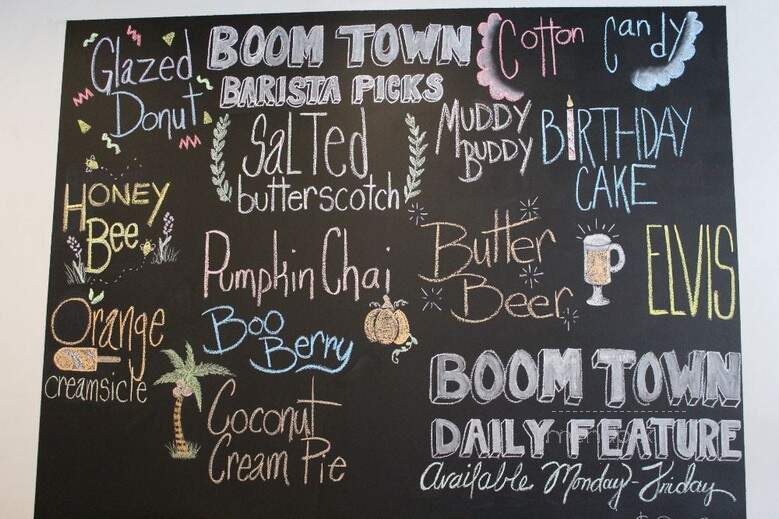 BOOM TOWN
BARISTA PICKS
Glazed
Donut
Cotton Candy
Salted
butterscotch
MUDDY
BUDDY
BIRTHDAY
CAKE
HONEY
Bee
Pumpkin Chai
Butter
Beer
ELVIS
Orange
creamsicle
Boo
Berry
Coconut
Cream Pie
BOOM TOWN
DAILY FEATURE
Available Monday-Friday